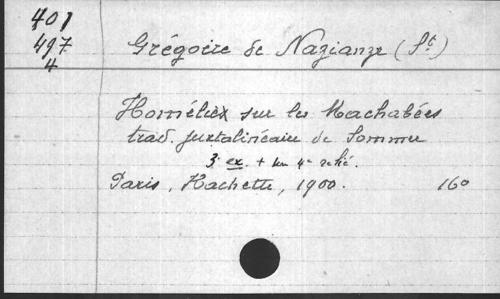 401
497
4
Grégoire de Nazianze (St)
Homélies sur les Machabées
trad. juxtalinéaire de Sommer
3 ex. + un 4e relié.
Paris, Hachette, 1900. 16o